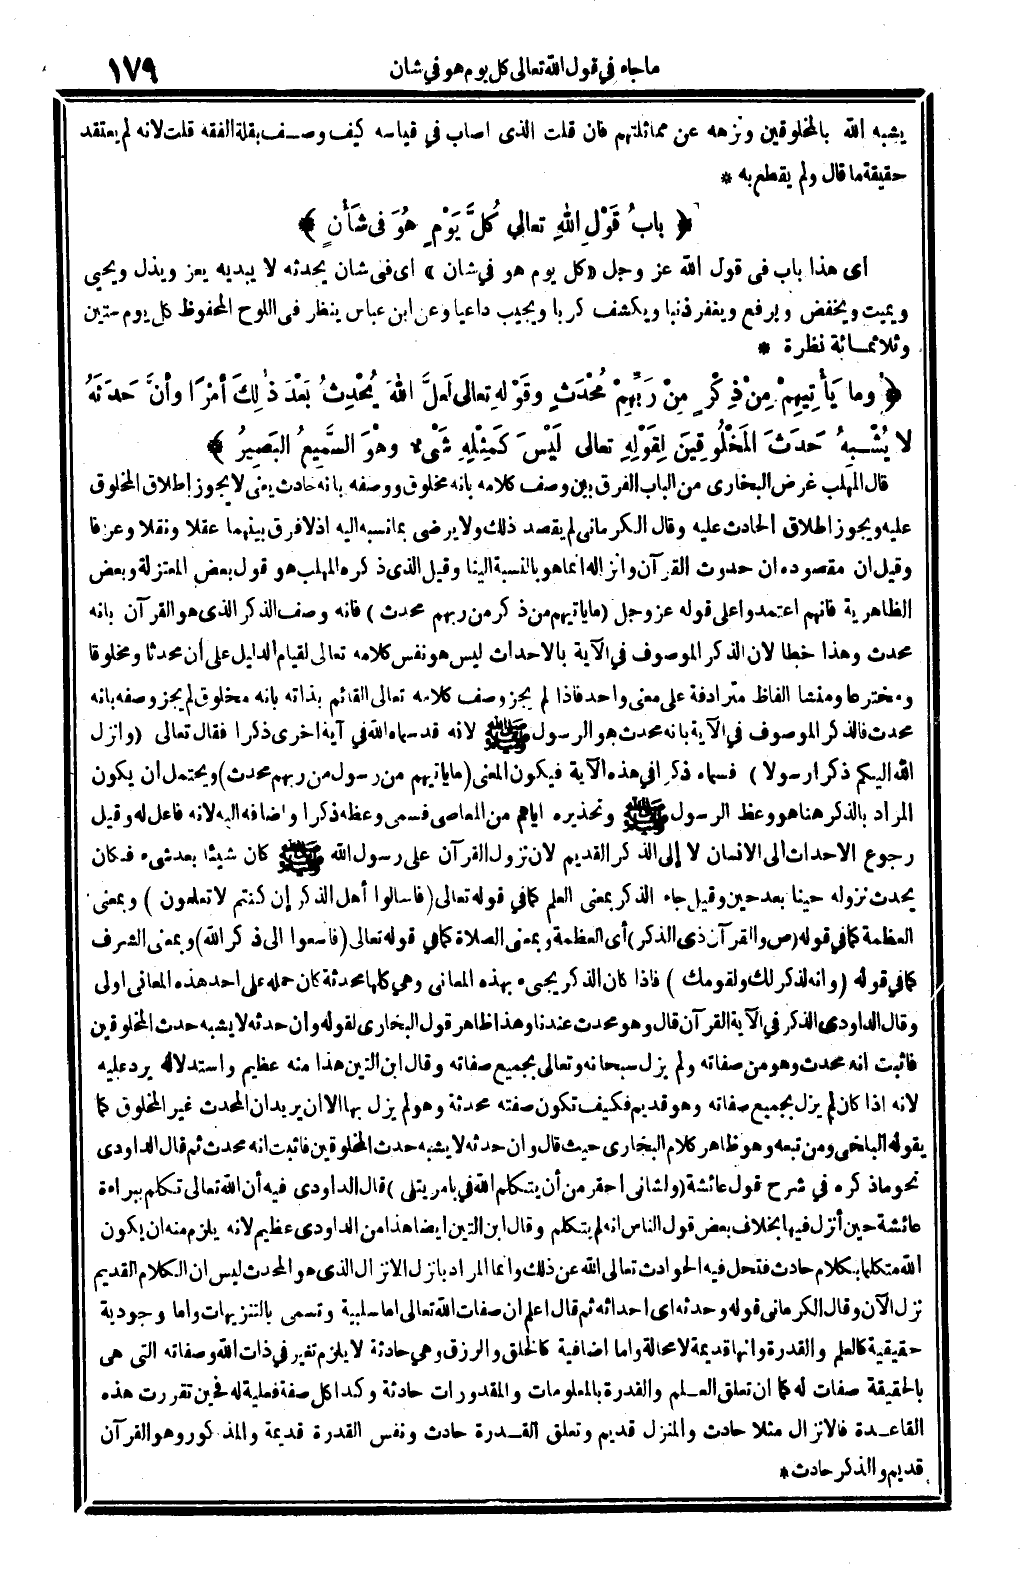 ما جاء في قول الله تعالى كل يوم هو في شان ١٧٩
يشبه الله بالمخلوقين ونزهه عن مماثلتهم فان قلت الذى اصاب في قياسه كيف وصف بقلة الفقه قلت لانه لم يعتقد
حقيقة ما قال ولم يقطع به *
﴿ بابُ قَوْلِ اللهِ تعالى كُلَّ يَوْمٍ هُوَ فى شَأْنٍ ﴾
اى هذا باب فى قول الله عز وجل «كل يوم هو في شان» اى فى شان يحدثه لا يبديه يعز ويذل ويحيى
ويميت ويخفض ويرفع ويغفر ذنبا ويكشف كربا ويجيب داعيا وعن ابن عباس ينظر فى اللوح المحفوظ كل يوم ستين
وثلاثمائة نظرة *
﴿ وما يَأْتِيهِمْ مِنْ ذِكْرٍ مِنْ رَبِّهِمْ مُحْدَثٍ وقَوْلِهِ تعالى لَعَلَّ اللهَ يُحْدِثُ بَعْدَ ذٰلِكَ أمْرًا وأنَّ حَدَثَهُ
لا يُشْبِهُ حَدَثَ المَخْلُوقِينَ لِقَوْلِهِ تعالى لَيْسَ كَمِثْلِهِ شَىْء وهْوَ السَّمِيعُ البَصِيرُ ﴾
قال المهلب غرض البخارى من الباب الفرق بين وصف كلامه بانه مخلوق ووصفه بانه حادث يعنى لا يجوز اطلاق المخلوق
عليه ويجوز اطلاق الحادث عليه وقال الكرمانى لم يقصد ذلك ولا يرضى بما نسبه اليه اذ لا فرق بينهما عقلا ونقلا وعرفا
وقيل ان مقصوده ان حدوث القرآن وانزاله انما هو بالنسبة الينا وقيل الذى ذكره المهلب هو قول بعض المعتزلة وبعض
الظاهرية فانهم اعتمدوا على قوله عز وجل (ما ياتيهم من ذكر من ربهم محدث) فانه وصف الذكر الذى هو القرآن بانه
محدث وهذا خطا لان الذكر الموصوف في الآية بالاحداث ليس هو نفس كلامه تعالى لقيام الدليل على أن محدثا ومخلوقا
ومخترعا ومنشا الفاظ مترادفة على معنى واحد فاذا لم يجز وصف كلامه تعالى القائم بذاته بانه مخلوق لم يجز وصفه بانه
محدث فالذكر الموصوف في الآية بانه محدث هو الرسول ﷺ لانه قد سماه الله في آية اخرى ذكرا فقال تعالى (وانزل
الله اليكم ذكرا رسولا) فسماه ذكرا في هذه الآية فيكون المعنى (ما ياتيهم من رسول من ربهم محدث) ويحتمل ان يكون
المراد بالذكر هنا هو وعظ الرسول ﷺ وتحذيره اياهم من المعاصى فسمى وعظه ذكرا واضافه اليه لانه فاعل له وقيل
رجوع الاحداث الى الانسان لا إلى الذكر القديم لان نزول القرآن على رسول الله ﷺ كان شيئا بعد شىء فكان
يحدث نزوله حينا بعد حين وقيل جاء الذكر بمعنى العلم كما في قوله تعالى (فاسالوا أهل الذكر إن كنتم لا تعلمون) وبمعنى
العظمة كما في قوله (ص والقرآن ذى الذكر) أى العظمة وبمعنى الصلاة كما في قوله تعالى (فاسعوا الى ذكر الله) وبمعنى الشرف
كما في قوله (وانه لذكر لك ولقومك) فاذا كان الذكر يجىء بهذه المعانى وهي كلها محدثة كان حمله على احد هذه المعانى اولى
وقال الداودى الذكر في الآية القرآن قال وهو محدث عندنا وهذا ظاهر قول البخارى لقوله وان حدثه لا يشبه حدث المخلوقين
فاثبت انه محدث وهو من صفاته ولم يزل سبحانه وتعالى بجميع صفاته وقال ابن التين هذا منه عظيم واستدلاله يرد عليه
لانه اذا كان لم يزل بجميع صفاته وهو قديم فكيف تكون صفته محدثة وهو لم يزل بها الا ان يريد ان المحدث غير المخلوق كما
يقوله البلخى ومن تبعه وهو ظاهر كلام البخارى حيث قال وان حدثه لا يشبه حدث المخلوقين فاثبت انه محدث ثم قال الداودى
نحو ما ذكره في شرح قول عائشة (ولشانى احقر من أن يتكلم الله في بامر يتلى) قال الداودى فيه أن الله تعالى تكلم ببراءة
عائشة حين أنزل فيها بخلاف بعض قول الناس انه لم يتكلم وقال ابن التين ايضا هذا من الداودى عظيم لانه يلزم منه ان يكون
الله متكلما بكلام حادث فتحل فيه الحوادث تعالى الله عن ذلك وانما المراد بانزل الانزال الذى هو المحدث ليس ان الكلام القديم
نزل الآن وقال الكرمانى قوله وحدثه اى احداثه ثم قال اعلم ان صفات الله تعالى اما سلبية وتسمى بالتنزيهات واما وجودية
حقيقية كالعلم والقدرة وانها قديمة لا محالة واما اضافية كالخلق والرزق وهي حادثة لا يلزم تغير في ذات الله وصفاته التى هى
بالحقيقة صفات له كما ان تعلق العلم والقدرة بالمعلومات والمقدورات حادثة وكذا كل صفة فعلية له فحين تقررت هذه
القاعدة فالانزال مثلا حادث والمنزل قديم وتعلق القدرة حادث ونفس القدرة قديمة والمذكور وهو القرآن
قديم والذكر حادث *